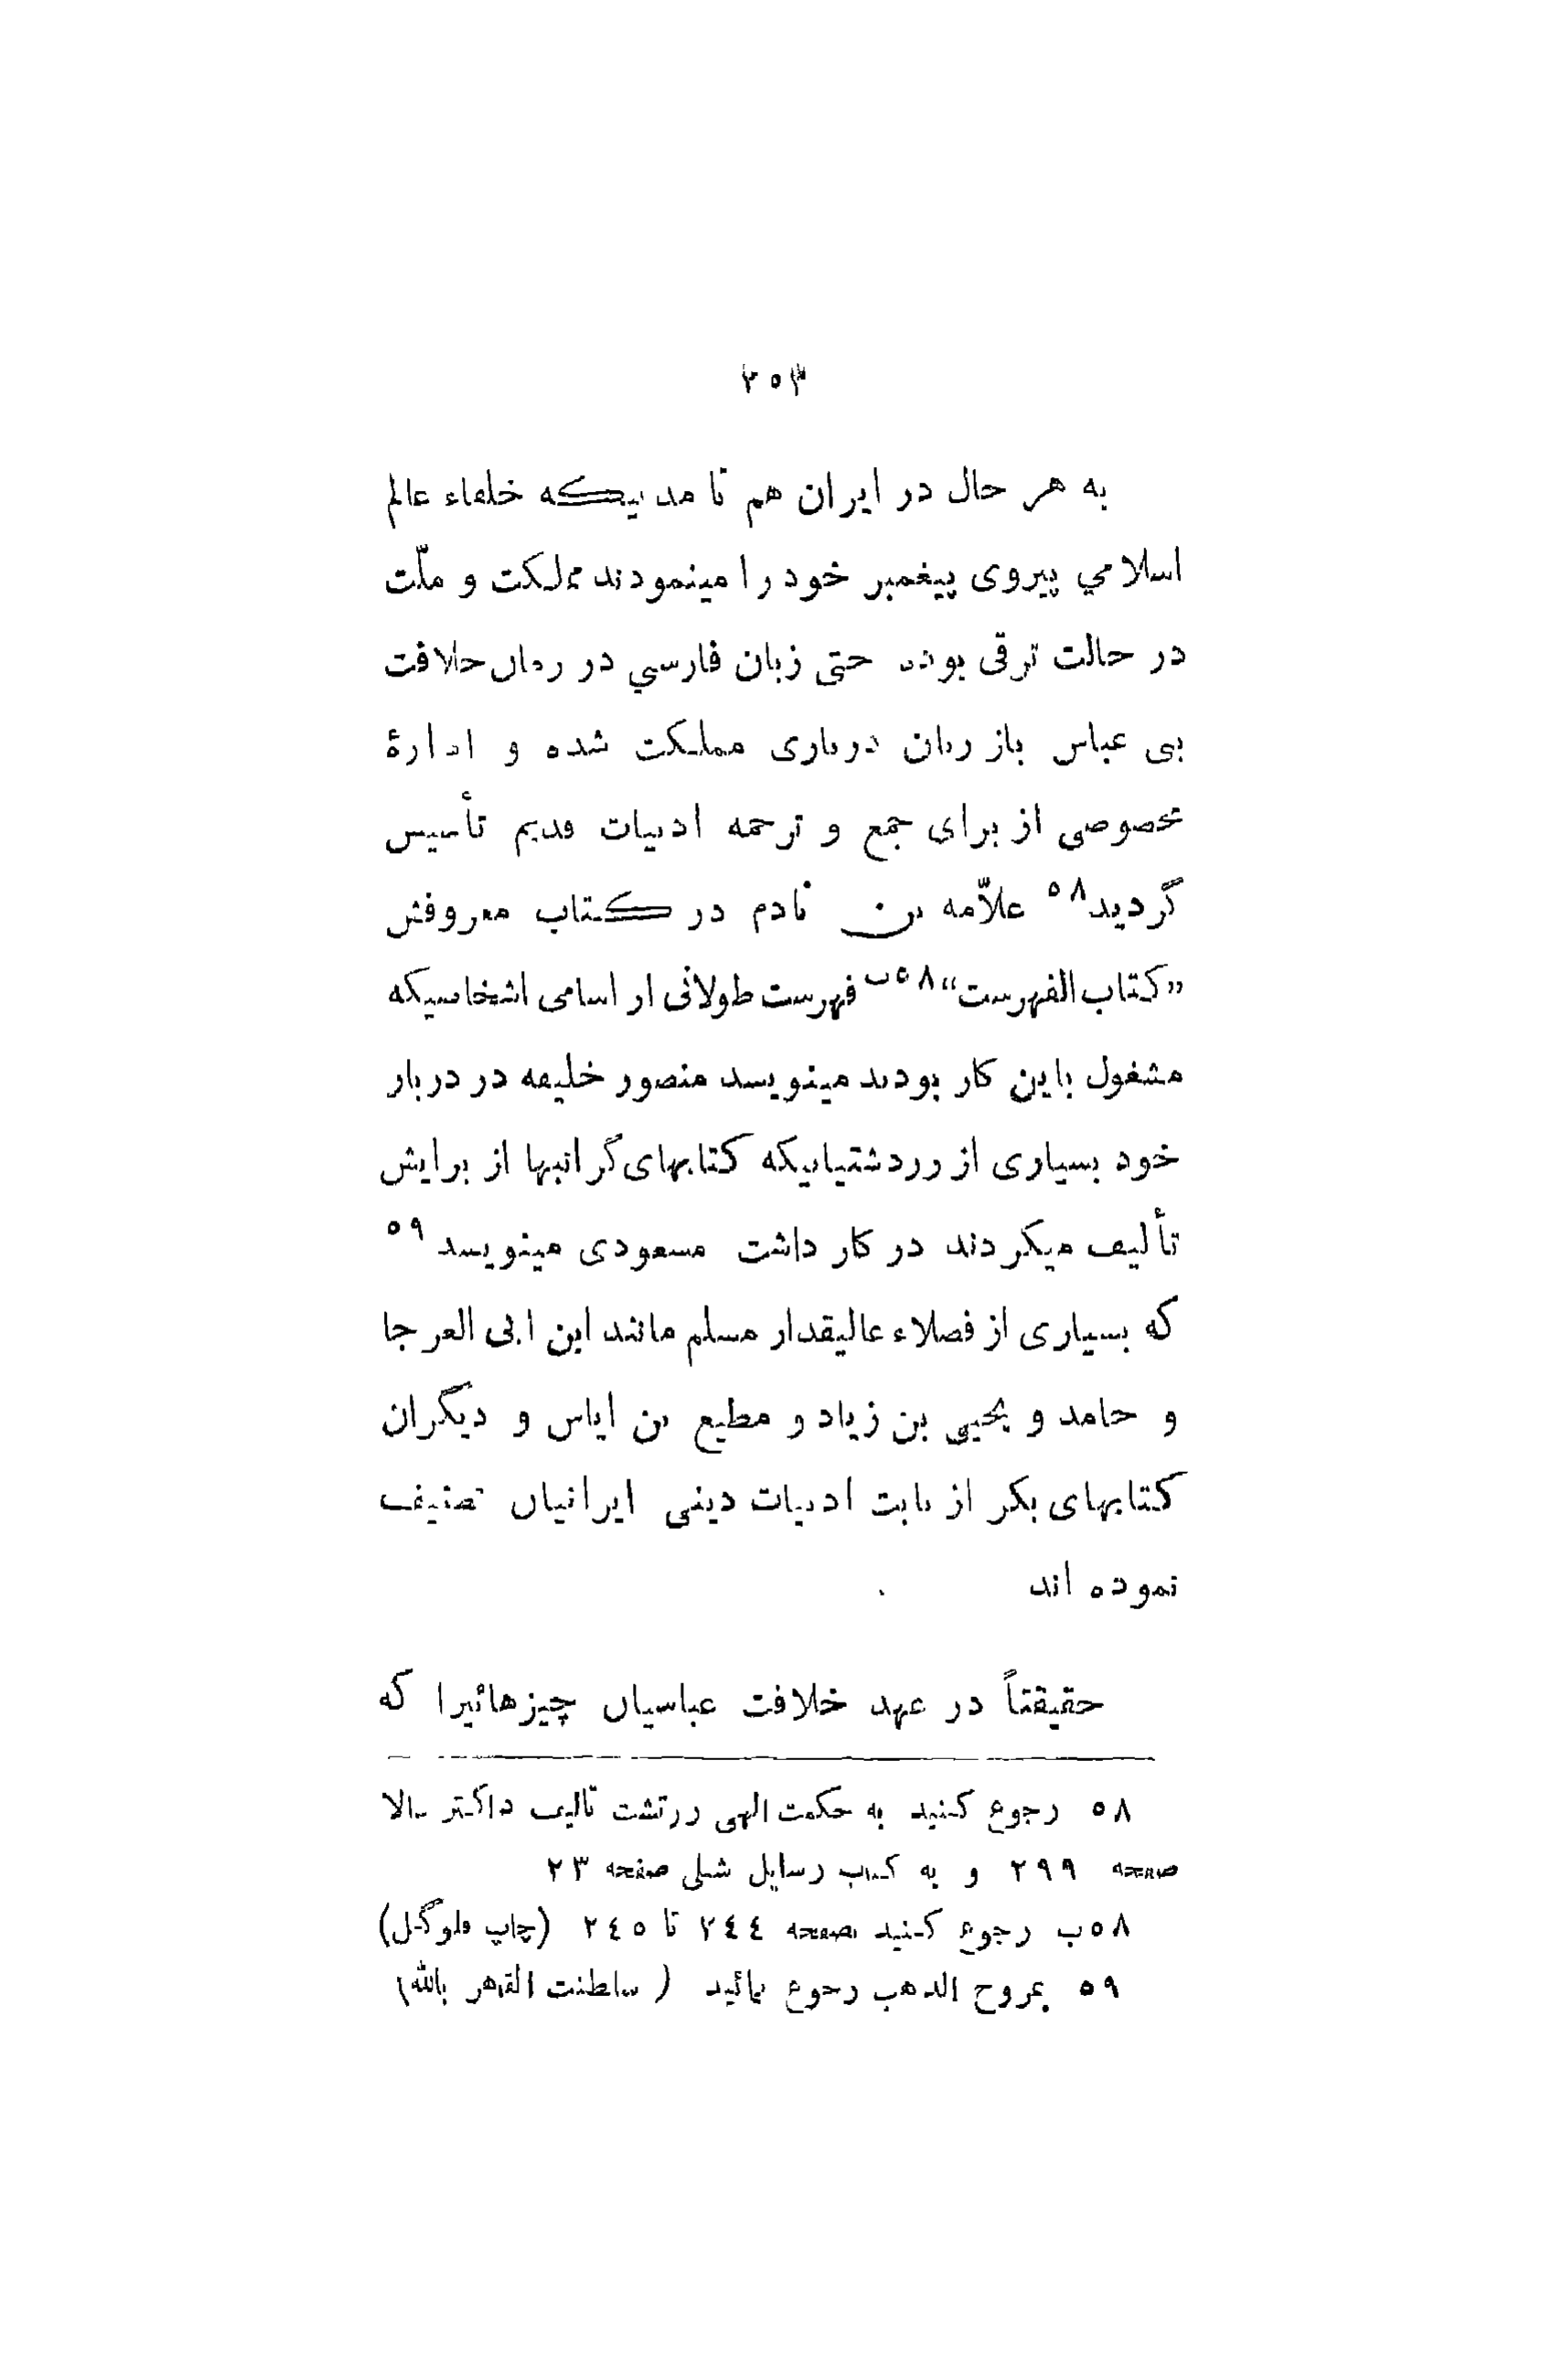 ۲۵۳
به هر حال در ایران هم تا مدتیکه خلفاء عالم
اسلامي پیروی پیغمبر خود را مینمودند مملکت و ملّت
در حالت ترقی بوده حتی زبان فارسي در زمان خلافت
بنی عباس باز زبان درباری مملکت شده و ادارهٔ
مخصوصی از برای جمع و ترجمه ادبیات قدیم تأسیس
گردید۵۸ علاّمه بن نادم در کتاب معروفش
”کتاب الفهرست“۵۸ب فهرست طولانی از اسامی اشخاصیکه
مشغول باین کار بودند مینویسد منصور خلیفه در دربار
خود بسیاری از زردشتیانیکه کتابهای گرانبها از برایش
تألیف میکردند در کار داشت مسعودی مینویسد۵۹
که بسیاری از فضلاء عالیقدار مسلم مانند ابن ابی العرجا
و حامد و یحیی بن زیاد و مطیع بن ایاس و دیگران
کتابهای بکر از بابت ادبیات دینی ایرانیان تصنیف
نموده اند
حقیقتاً در عهد خلافت عباسیان چیزهائیرا که
۵۸ رجوع کنید به حکمت الهی زرتشت تالیف داکتر دالا
صفحه ۲۹۹ و به کتاب رسایل شبلی صفحه ۲۳
۵۸ب رجوع کنید بصفحه ۲٤٤ تا ۲٤۵ (چاپ فلوگل)
۵۹ بمروج الذهب رجوع نمائید (سلطنت القهر بالله)